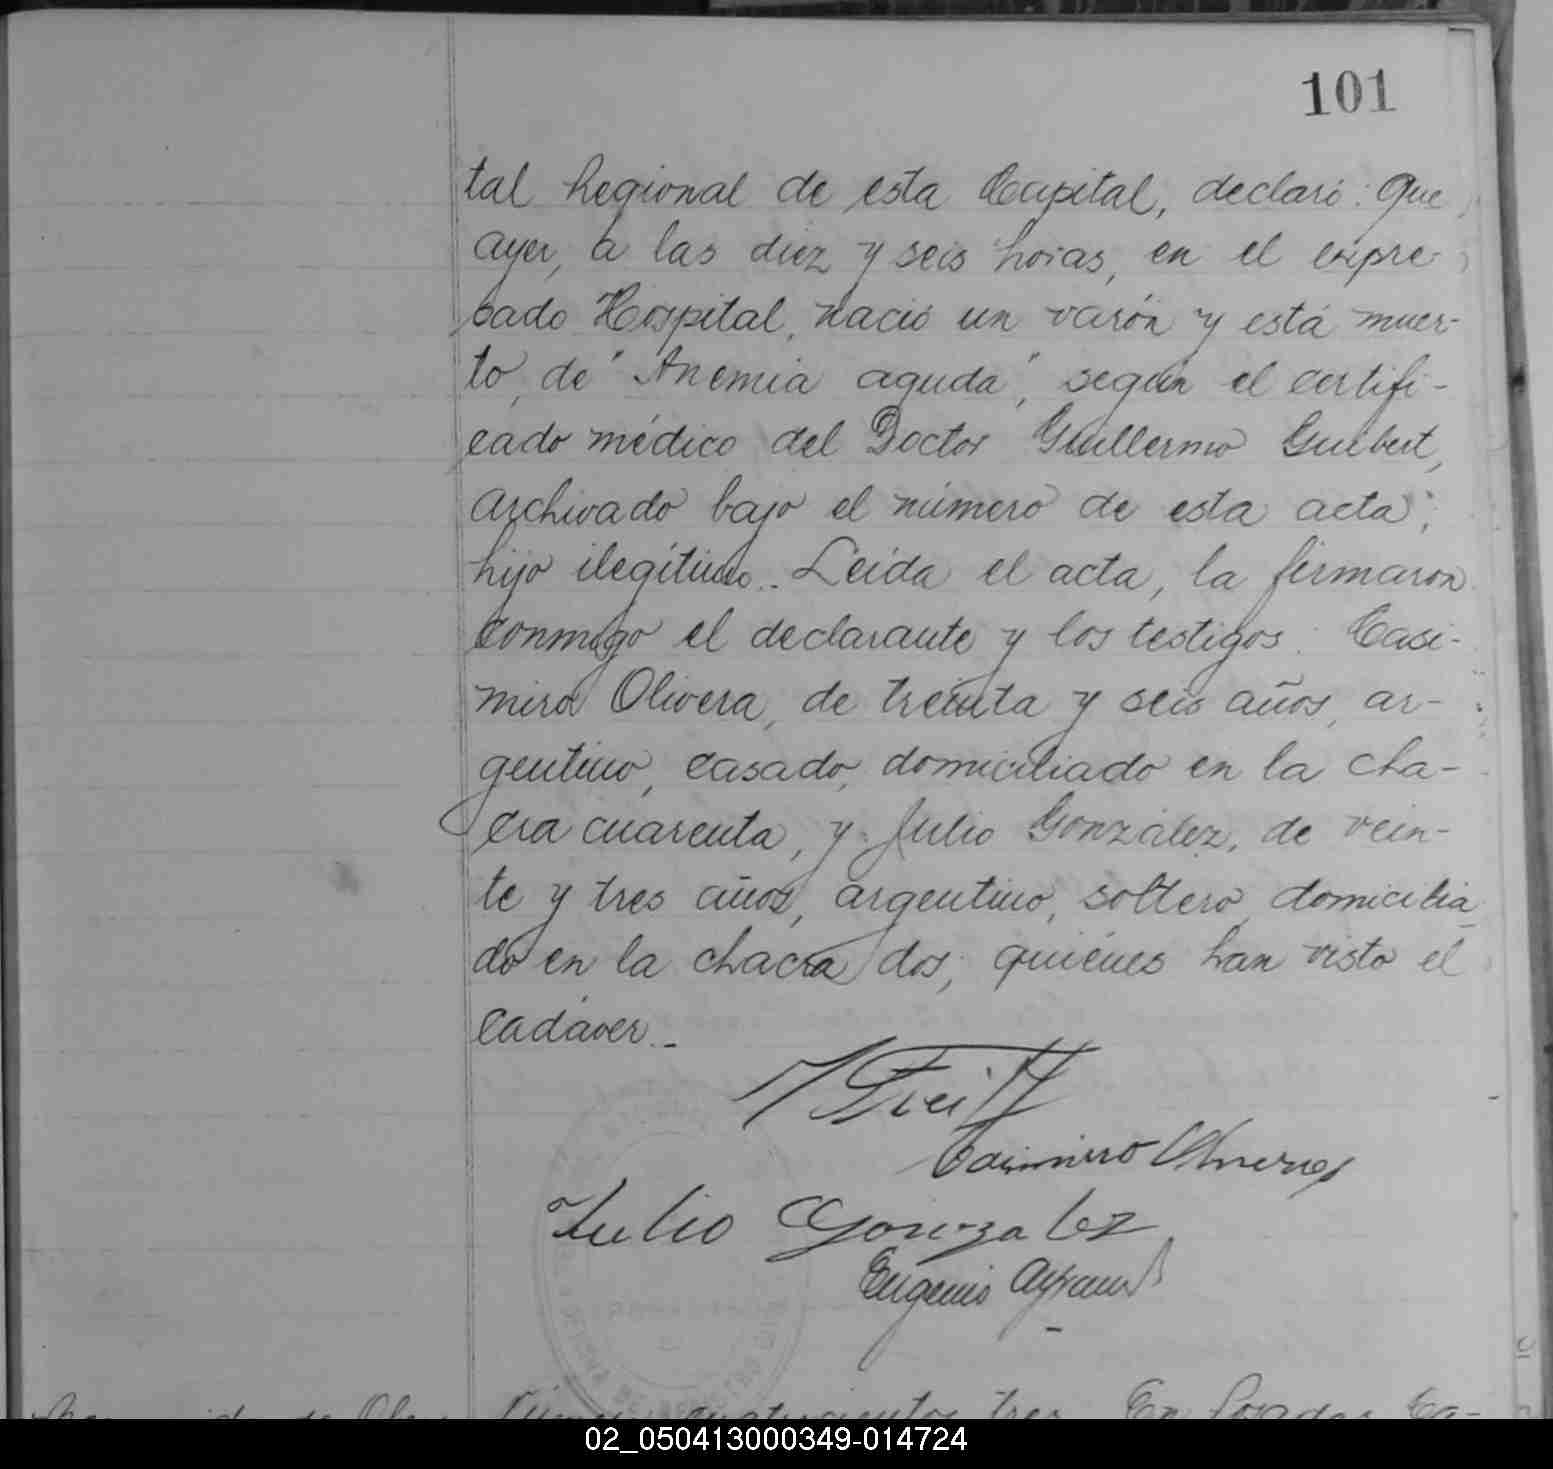 101
tal Regional de esta Capital, declaró: que
ayer, a las diez y seis horas, en el expre-
sado Hospital, nació un varón y está muer-
to, de "Anemia aguda", según el certifi-
cado médico del Doctor Guillermo Guibert,
archivado bajo el número de esta acta;
hijo ilegítimo.- Leída el acta, la firmaron
conmigo el declarante y los testigos: Casi-
miro Olivera, de treinta y seis años, ar-
gentino, casado, domiciliado en la cha-
cra cuarenta, y Julio González, de vein-
te y tres años, argentino, soltero, domicilia
do en la chacra dos; quiénes han visto el
cadáver.-
Casimiro Olivera
Julio Gonzalez
Eugenio
cuatrocientos tres. En Posadas, Ca-
02_050413000349-014724